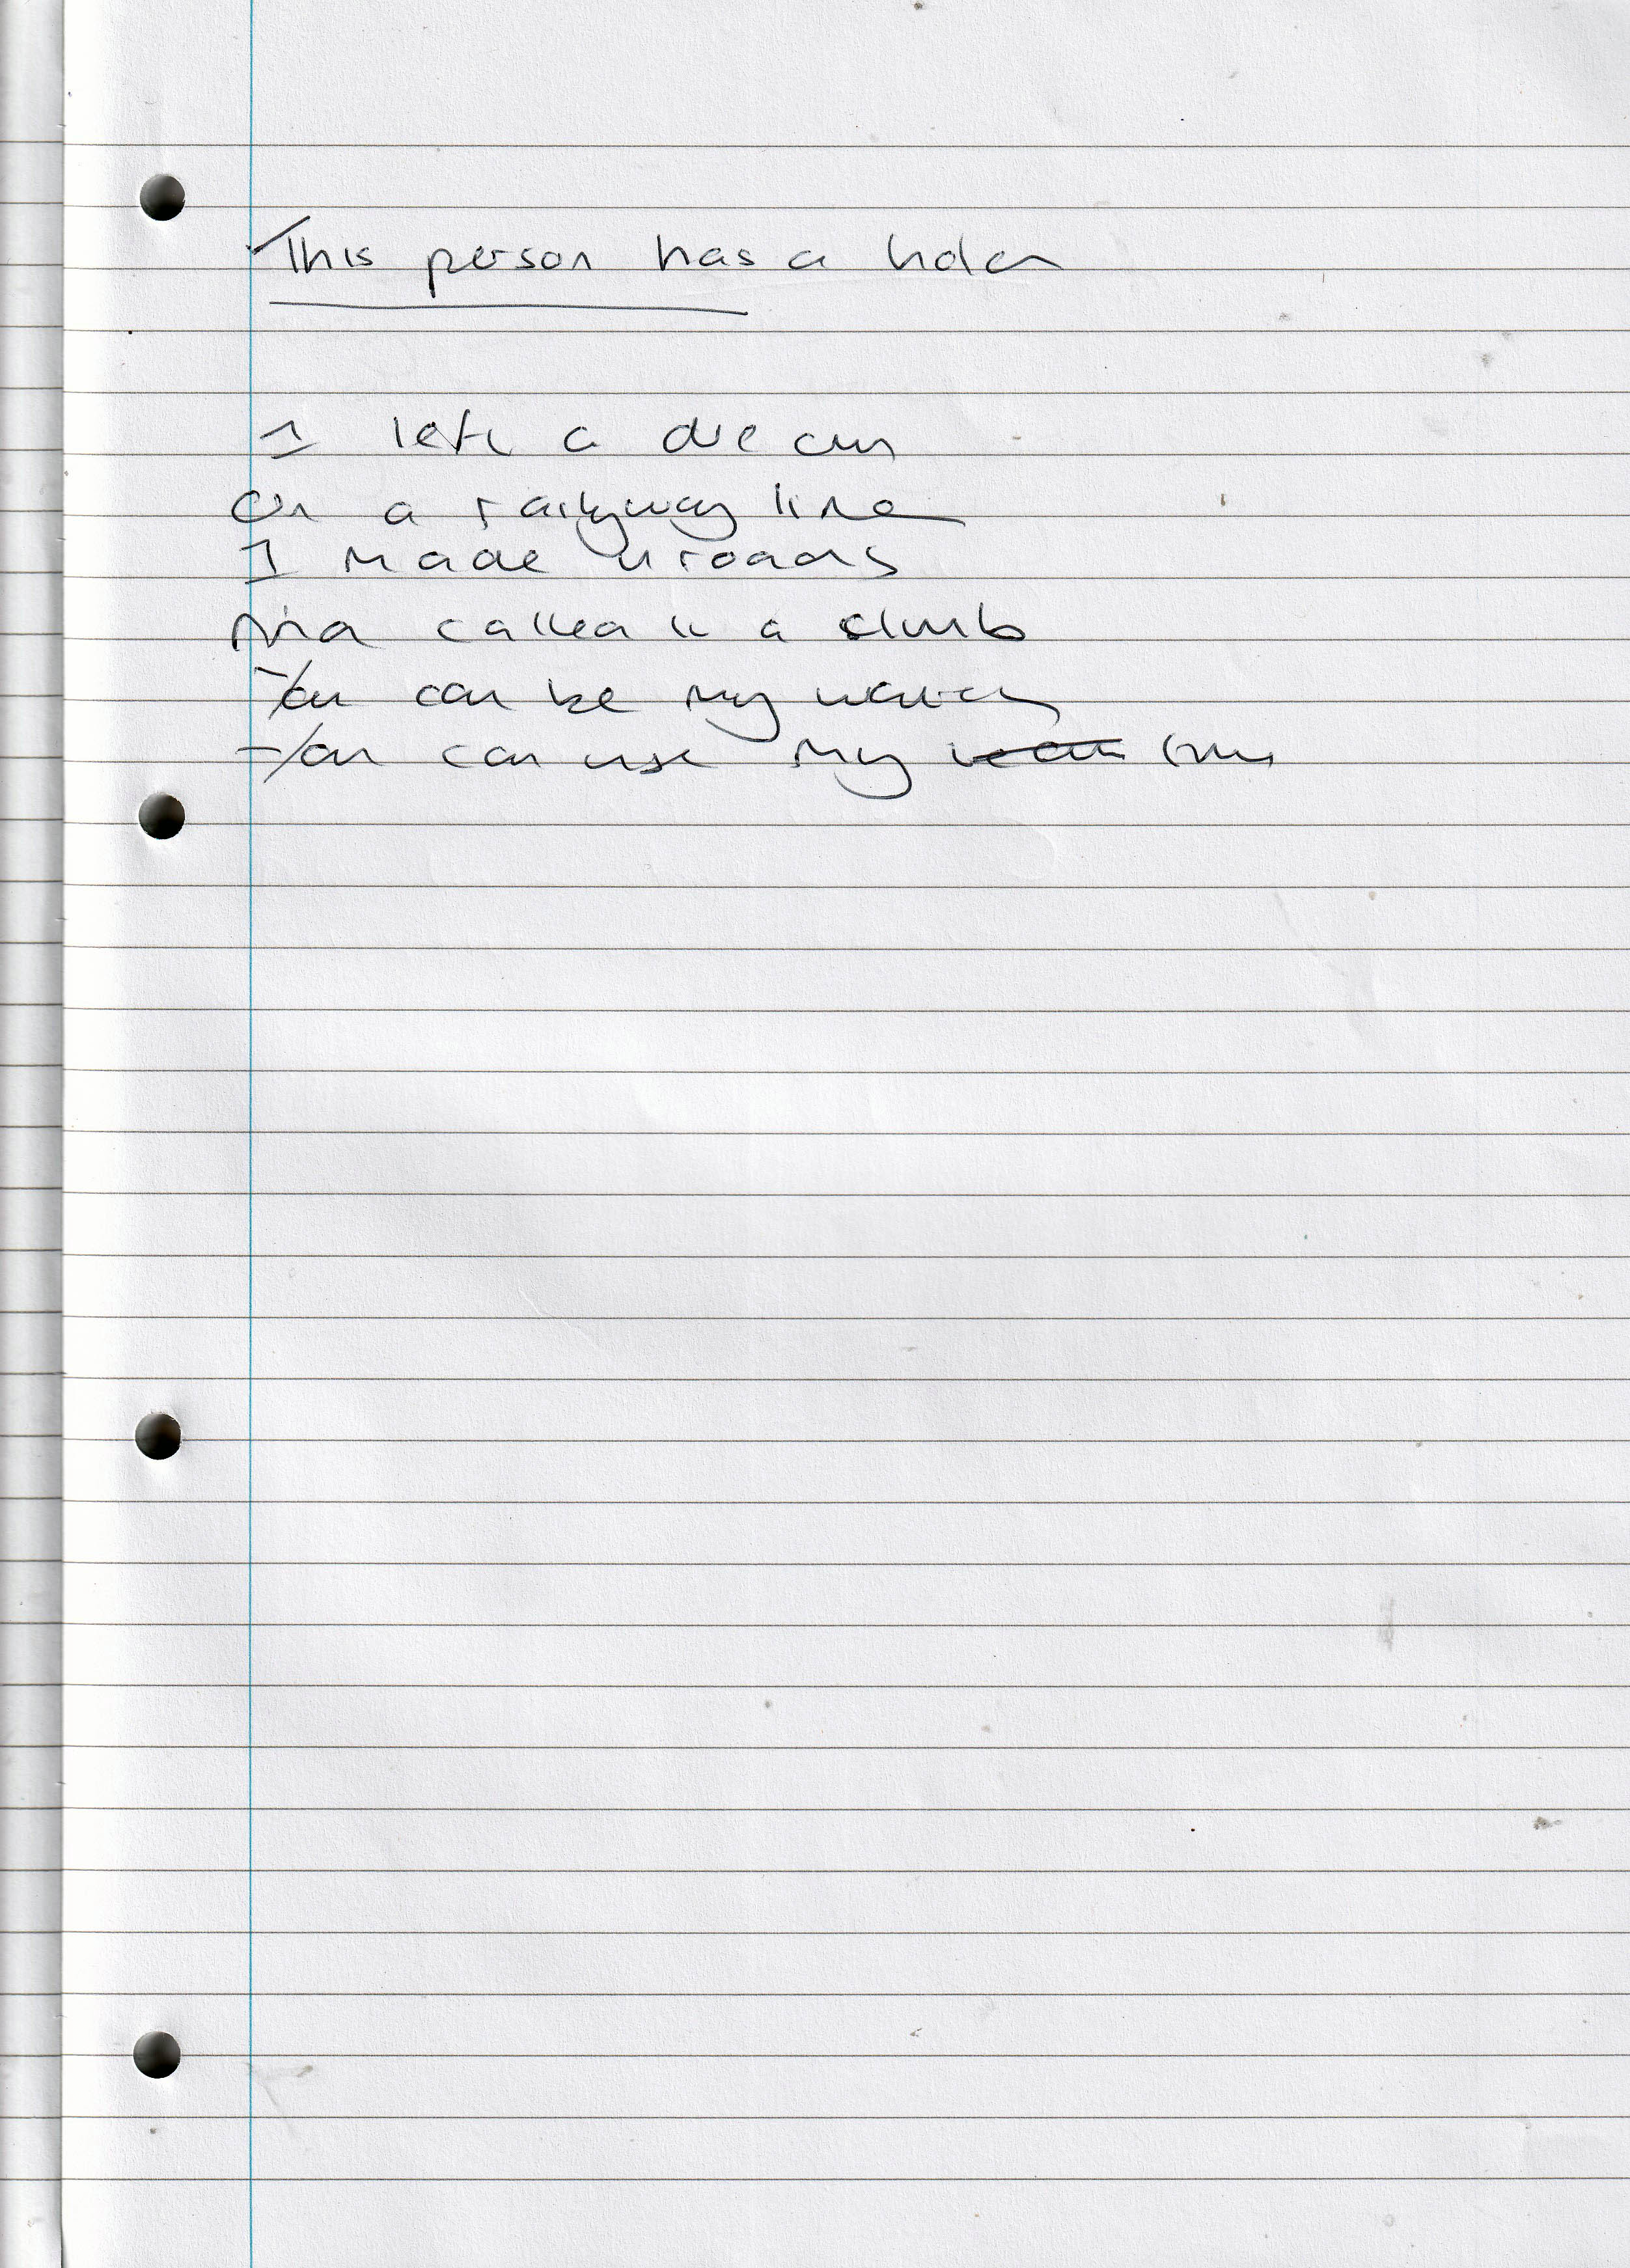 This person has a
I left a dream
on a railway line
I made inroads
And called it a
You can be my
You can use my